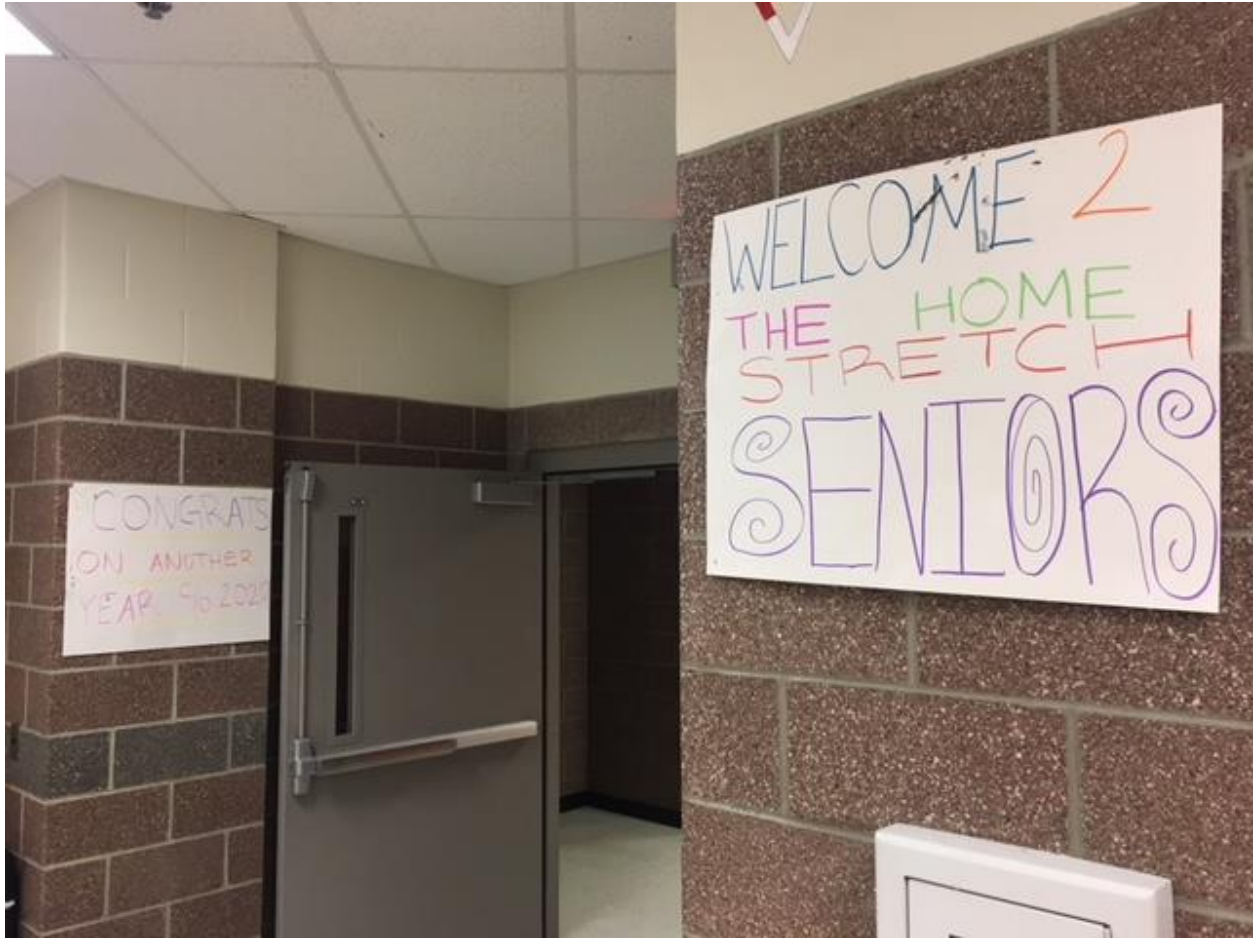 CONGRATS
ON ANOTHER
YEAR, C/O 2020
WELCOME 2
THE HOME
STRETCH
SENIORS